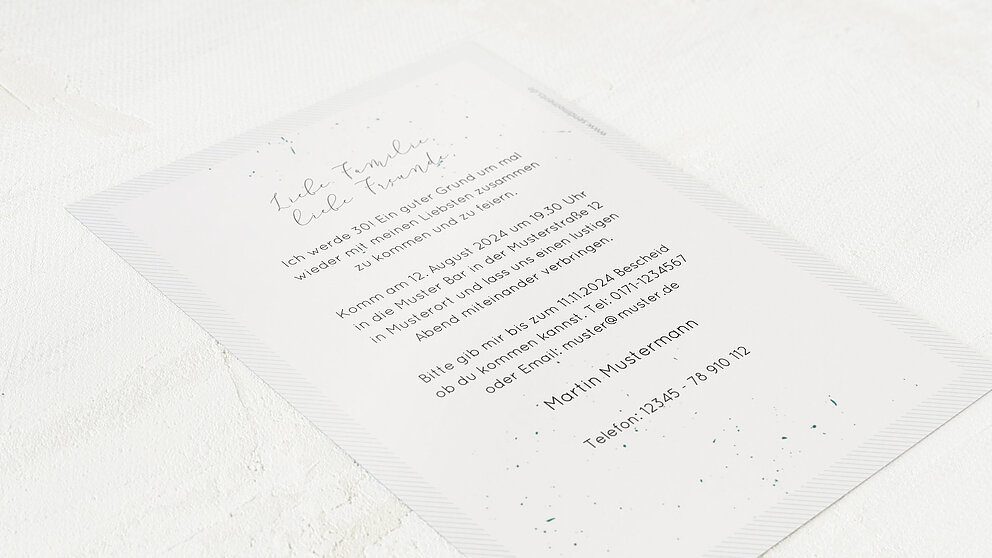 Liebe Familie,
liebe Freunde,
Ich werde 30! Ein guter Grund um mal
wieder mit meinen Liebsten zusammen
zu kommen und zu feiern.
Komm am 12. August 2024 um 19.30 Uhr
in die Muster Bar in der Musterstraße 12
in Musterort und lass uns einen lustigen
Abend miteinander verbringen.
Bitte gib mir bis zum 11.11.2024 Bescheid
ob du kommen kannst. Tel: 0171-1234567
oder Email: muster@muster.de
Martin Mustermann
Telefon: 12345 - 78 910 112